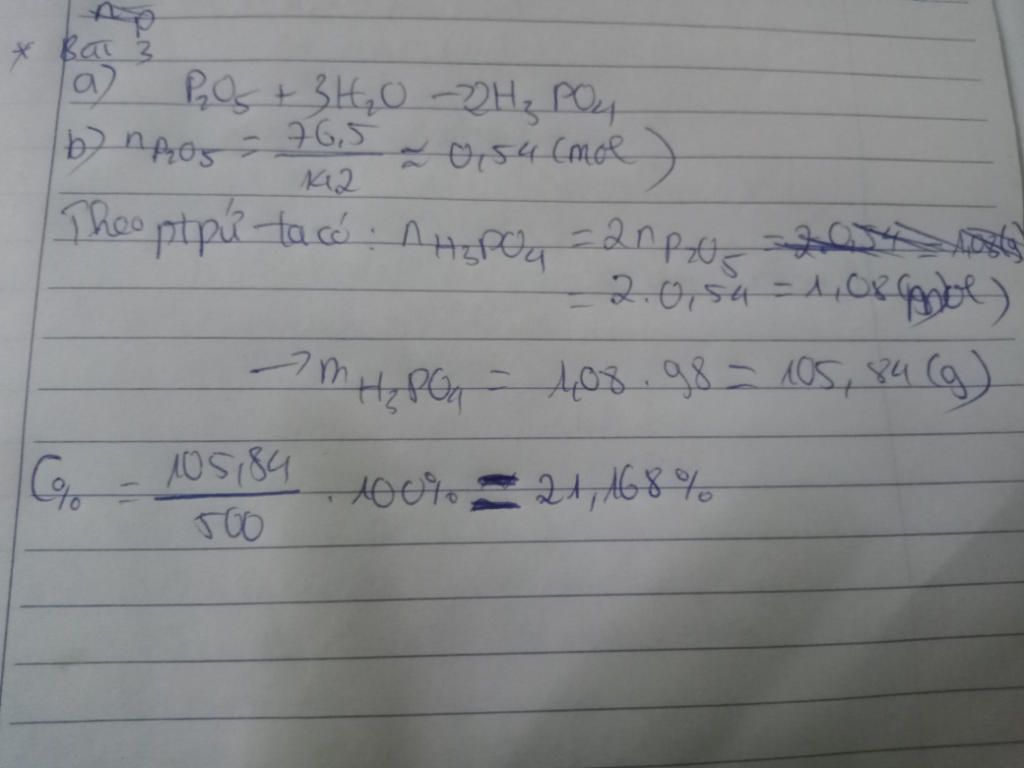 * Bài 3
a) P₂O₅ + 3H₂O → 2H₃PO₄
b) nP₂O₅ = 76,5/142 ≈ 0,54 (mol)
Theo ptpứ ta có: nH₃PO₄ = 2nP₂O₅
= 2.0,54 = 1,08 (mol)
→ mH₃PO₄ = 1,08 . 98 = 105,84 (g)
C% = 105,84/500 . 100% = 21,168%